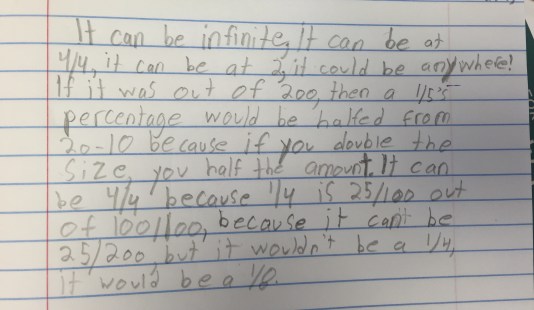 It can be infinite, it can be at
4/4, it can be at 2, it could be anywhere!
If it was out of 200, then a 1/5's
percentage would be halfed from
20-10 because if you double the
size, you half the amount. It can
be 4/4 because 1/4 is 25/100 out
of 100/100, because it can't be
25/200, but it wouldn't be a 1/4,
it would be a 1/8.